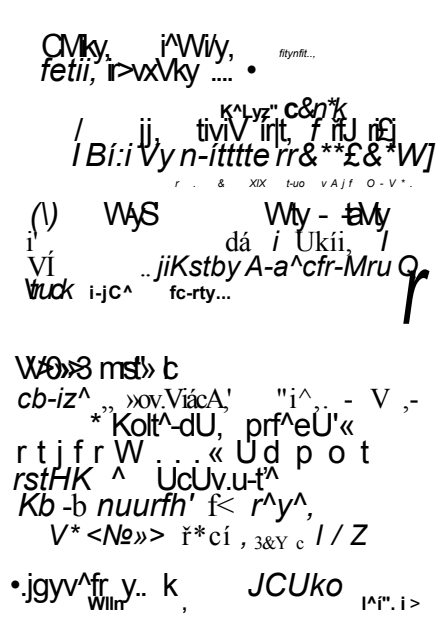 CMky, i^Wi/y, fitynfit..,
fetii, ir>vxVky .... •
K^Lyz" c&n*k
/ jj, tiviV ír|t, f rifJ ri£j
I Bí:i Vy n-ítttte rr&**£&*W]
r . & XIX t-uo v A j f O - V * .
(\) WAyS' Wty - -taVty
i' dá i Ukíi, I
VÍ .. jiKstby A-a^cfr-Mru O
Vruck i-jC^ fc-rty... r
VVA0»»3 mrst"» lc
cb-iz^ „ »ov.ViácA,' "i^,. - V ,-
* Kolt^-dU, prf^eU'«
r t j f r W . . . « U d p o t
rstHK ^ UcUv.u-ť^
Kb -b nuurfh' f< r^y^,
V* <№»> ř*cí , 3&Y c I / Z
•.jgyv^fr y.. k JCUko
WIIn , I^í". i >